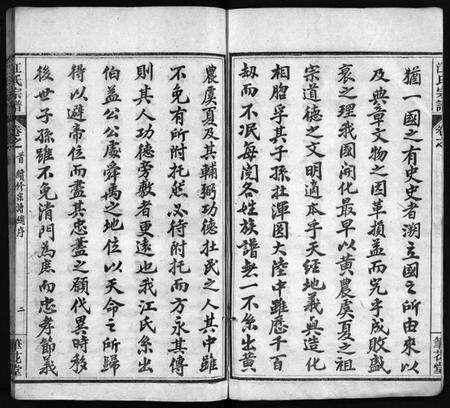 江氏宗譜
卷之
猶一國之有史史者溯立國之所由來以
及典章文物之因革損益而究乎成敗盛
衰之理我國開化最早以黃農虞夏之祖
宗道德之文明適本乎天經地義與造化
相脗孚其子孫壯渾圓大陸中雖歷千百
劫而不泯每閱各姓族譜無一不系出黃
筆花堂
農虞夏及其輔弼功德壯民之人其中雖
不免有所附托然必待附托而方永其傳
則其人功德旁敷者更遠也我江氏系出
伯益公公處舜禹之地位以天命之所歸
得以避帝位而盡其忠藎之顧代異時移
後世子孫雖不免清門為庶而忠孝節義
江氏宗譜
卷之首
續修宗譜總序
二
筆花堂